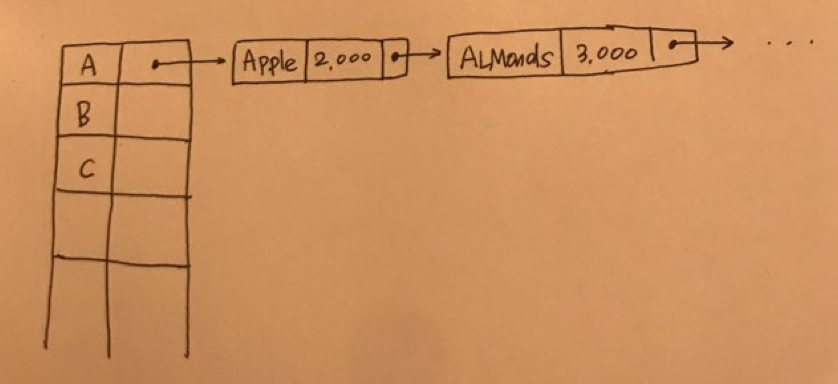 A Apple 2,000 ALMonds 3,000 ...
B
C